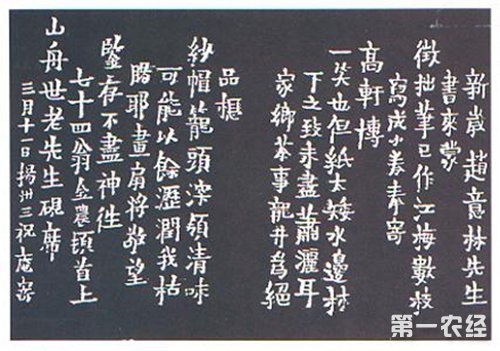 新歲趙意林先生
書來蒙
徵拙筆已作江梅數枝
寫成小奉寄
高軒博
一笑也但紙太矮水邊林
下之致未盡蕭灑耳
家鄉茶事龍井為絕
品想
紗帽籠頭深領清味
可能以餘瀝潤我枯
腸耶畫扇將敬望
鑒存不盡神往
七十四翁金農頓首上
山舟世老先生硯席
三月十一日揚州三祝庵寄
第一农经